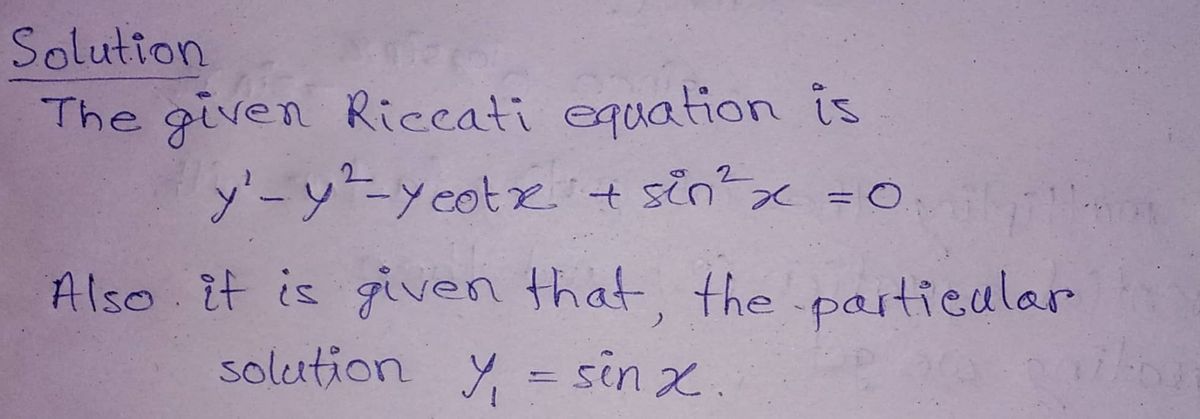 Solution
The given Riccati equation is
y' - y² - y cot x + sin² x = 0
Also it is given that, the particular
solution y₁ = sin x.